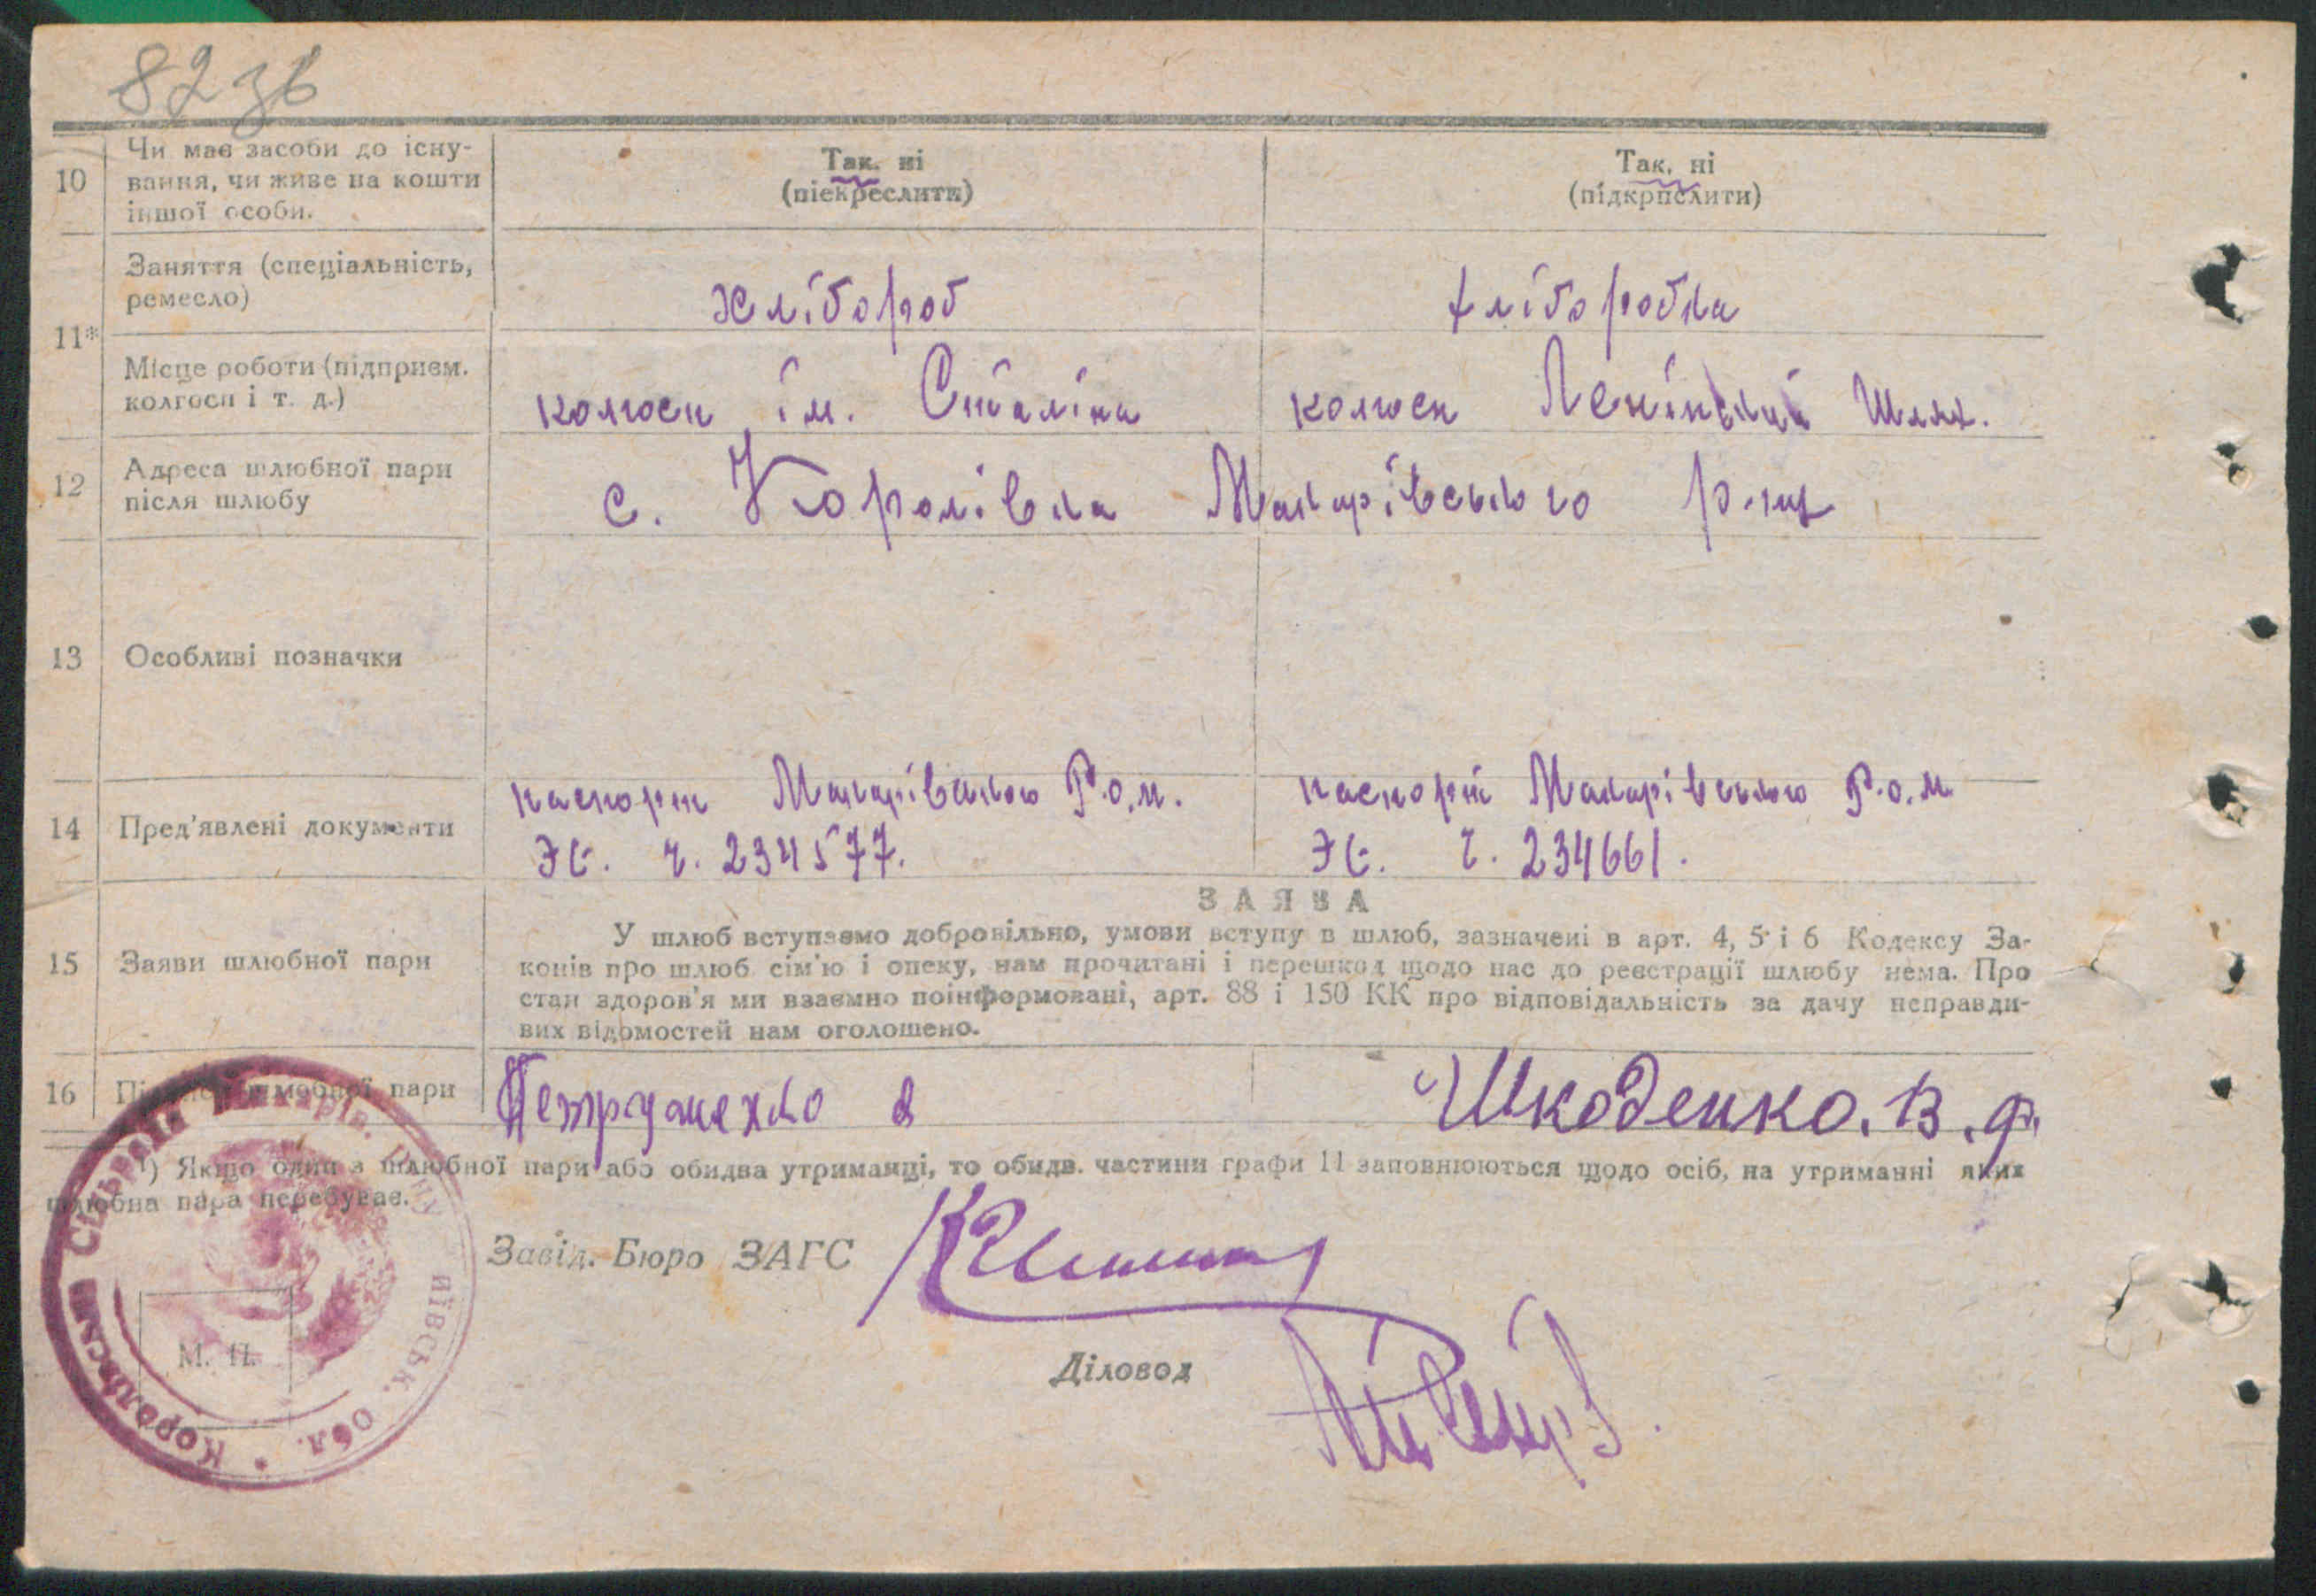 82 зв
10 Чи має засоби до існу-
вання, чи живе на кошти
іншої особи.
Так. ні
(піекреслити)
Так, ні
(підкрпслити)
11* Заняття (спеціальність,
ремесло)
хлібороб
хліборобка
Місце роботи (підприєм.
колгосп і т. д.)
колгосп ім. Сталіна
колгосп Ленінський Шлях.
12 Адреса шлюбної пари
після шлюбу
с. Королівка Макарівського р-ну
13 Особливі позначки
14 Пред'явлені документи
паспорт Макарівського Р.о.м.
ЭЄ. ч. 234577.
паспорт Макарівського Р.о.м
ЭЄ. ч. 234661.
15 Заяви шлюбної пари
ЗАЯВА
У шлюб вступаємо добровільно, умови вступу в шлюб, зазначені в арт. 4, 5 і 6 Кодексу За-
конів про шлюб сім'ю і опеку, нам прочитані і перешкод щодо нас до реєстрації шлюбу нема. Про
стан здоров'я ми взаємно поінформовані, арт. 88 і 150 КК про відповідальність за дачу неправди-
вих відомостей нам оголошено.
16 Підписи шлюбної пари
Шкоденко. В. Ф.
¹) Якщо один з шлюбної пари або обидва утриманці, то обидв. частини графи 11 заповнюються щодо осіб, на утриманні яких
шлюбна пара перебуває.
Завід. Бюро ЗАГС
Діловод
М. П.
Королівська Сільрада Макарів. р-ну Київськ. обл.